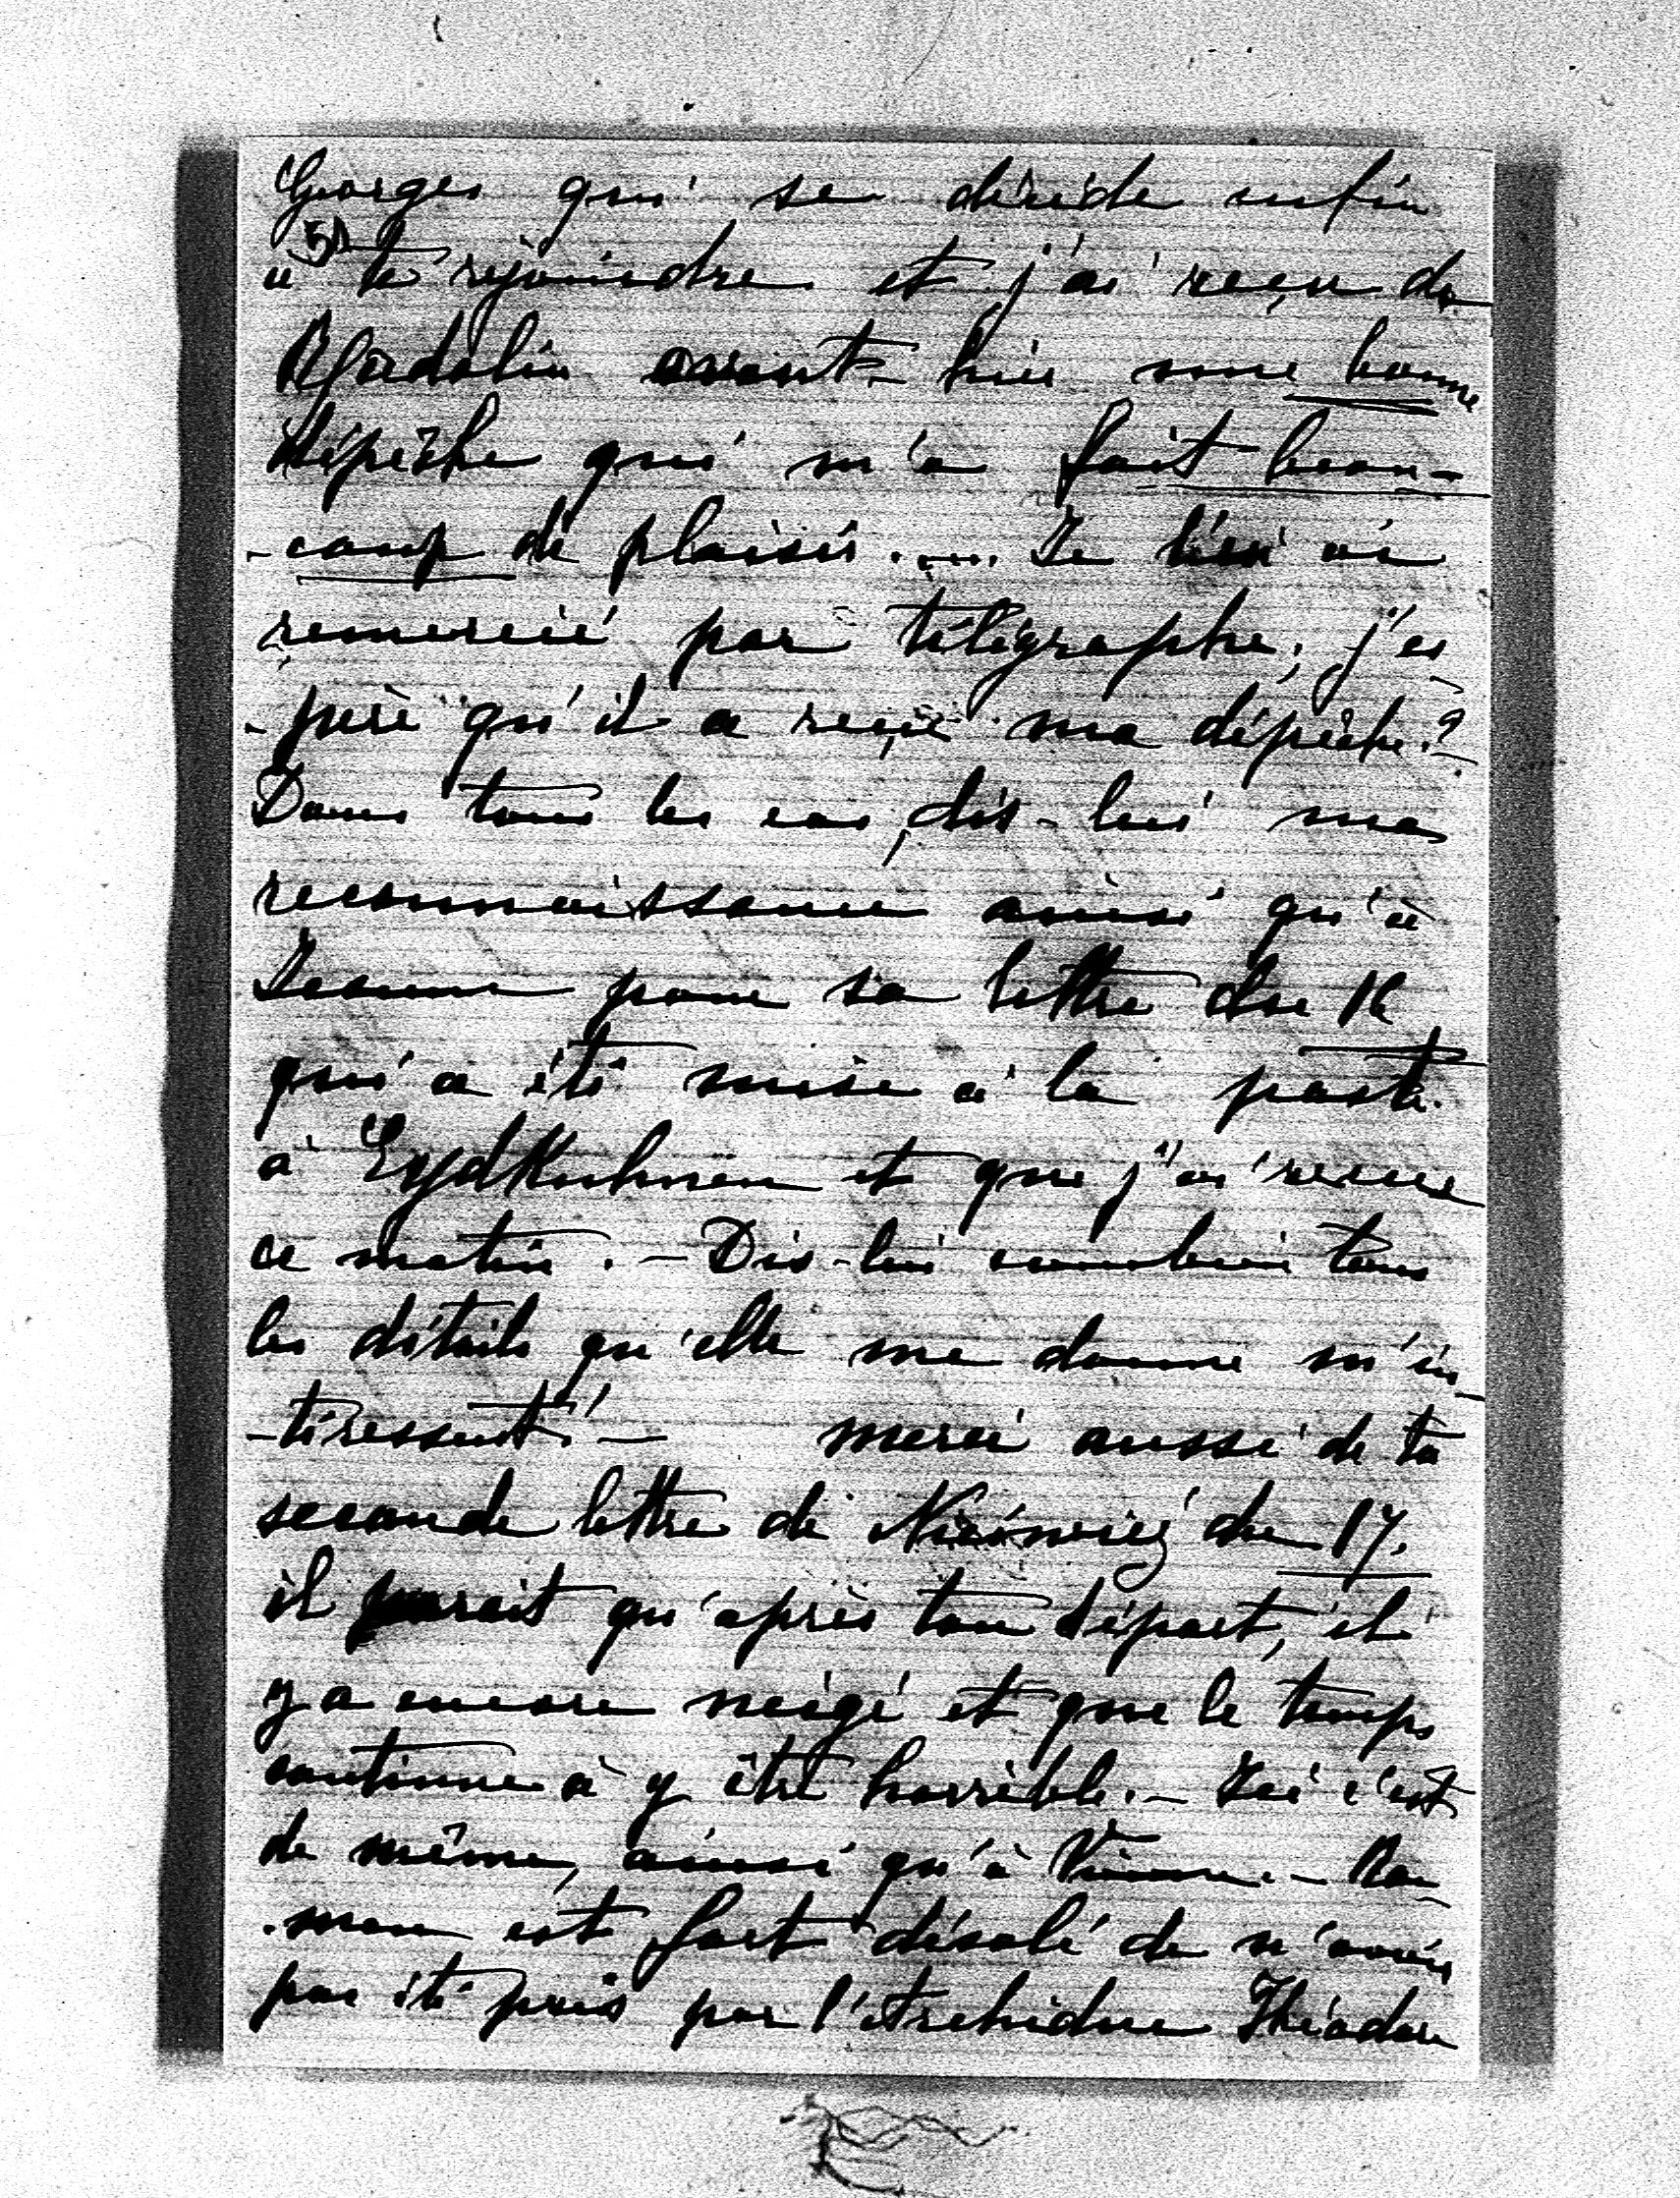 Georges qui se décide enfin
5)
à te rejoindre et j'ai reçu de
avant-hier une bonne
dépêche qui m'a fait beau-
-coup de plaisir..... Je l'en ai
remercié par télégraphe, j'es
-père qu'il a reçu ma dépêche?
Dans tous les cas, dis-lui ma
reconnaissance ainsi qu'à
Jeanne pour sa lettre du 16
qui a été mise à la poste
à Eydkuhnen et que j'ai reçue
ce matin. - Dis-lui combien tous
les détails qu'elle me donne m'in
-téressent! - merci aussi de ta
seconde lettre de du 17,
il parait qu'après ton départ, il
y a encore neigé et que le temps
continue à y être horrible. - Ici c'est
de même, ainsi qu'à Vienne. - Ro
-man est fort désolé de n'avoir
pas été pris par l'Archiduc Théodore